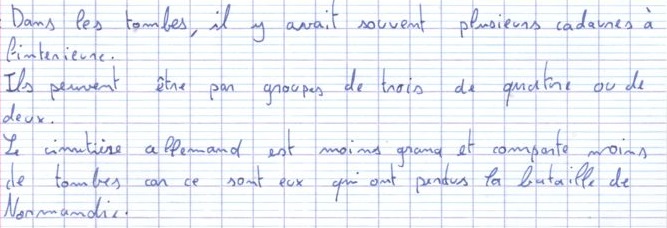 Dans les tombes, il y avait souvent plusieurs cadavres à
l'interieure.
Ils peuvent être par groupes de trois de quatre ou de
deux.
Le cimutière allemand est moins grand et comporte moins
de tombes car ce sont eux qui ont perdus la bataille de
Normandie.